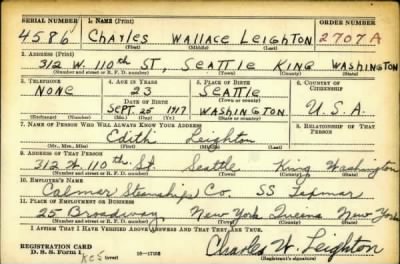 SERIAL NUMBER 1. NAME (Print) ORDER NUMBER
4586 CHARLES WALLACE LEIGHTON 2707A
(First) (Middle) (Last)
2. ADDRESS (Print)
312 W. 110th ST, SEATTLE KING WASHINGTON
(Number and street or R. F. D. number) (Town) (County) (State)
3. TELEPHONE 4. AGE IN YEARS 5. PLACE OF BIRTH 6. COUNTRY OF CITIZENSHIP
NONE 23 SEATTLE
DATE OF BIRTH (Town or county)
SEPT. 25 1917 WASHINGTON U.S.A.
(Exchange) (Number) (Mo.) (Day) (Yr.) (State or country)
7. NAME OF PERSON WHO WILL ALWAYS KNOW YOUR ADDRESS 8. RELATIONSHIP OF THAT PERSON
Edith Leighton
(Mr., Mrs., Miss) (First) (Middle) (Last)
9. ADDRESS OF THAT PERSON
312 W. 110th St Seattle King Washington
(Number and street or R. F. D. number) (Town) (County) (State)
10. EMPLOYER'S NAME
Calmar Steamship Co. SS
11. PLACE OF EMPLOYMENT OR BUSINESS
25 Broadway, New York Queens New York
(Number and street or R. F. D. number) (Town) (County) (State)
I AFFIRM THAT I HAVE VERIFIED ABOVE ANSWERS AND THAT THEY ARE TRUE.
REGISTRATION CARD
D. S. S. FORM 1 (over) 16—17105 Charles W. Leighton
(Registrant's signature)